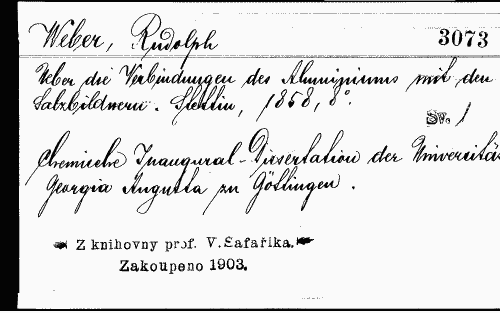 Weber, Rudolph
3073
Ueber die Verbindungen des Aluminiums mit den
Salzbildnern. Stettin, 1858, 8°.
Sv. 1
Chemische Inaugural-Dissertation der Universitäs
Georgia Augusta zu Göttingen.
Z knihovny prof. V. Šafaříka.
Zakoupeno 1903.